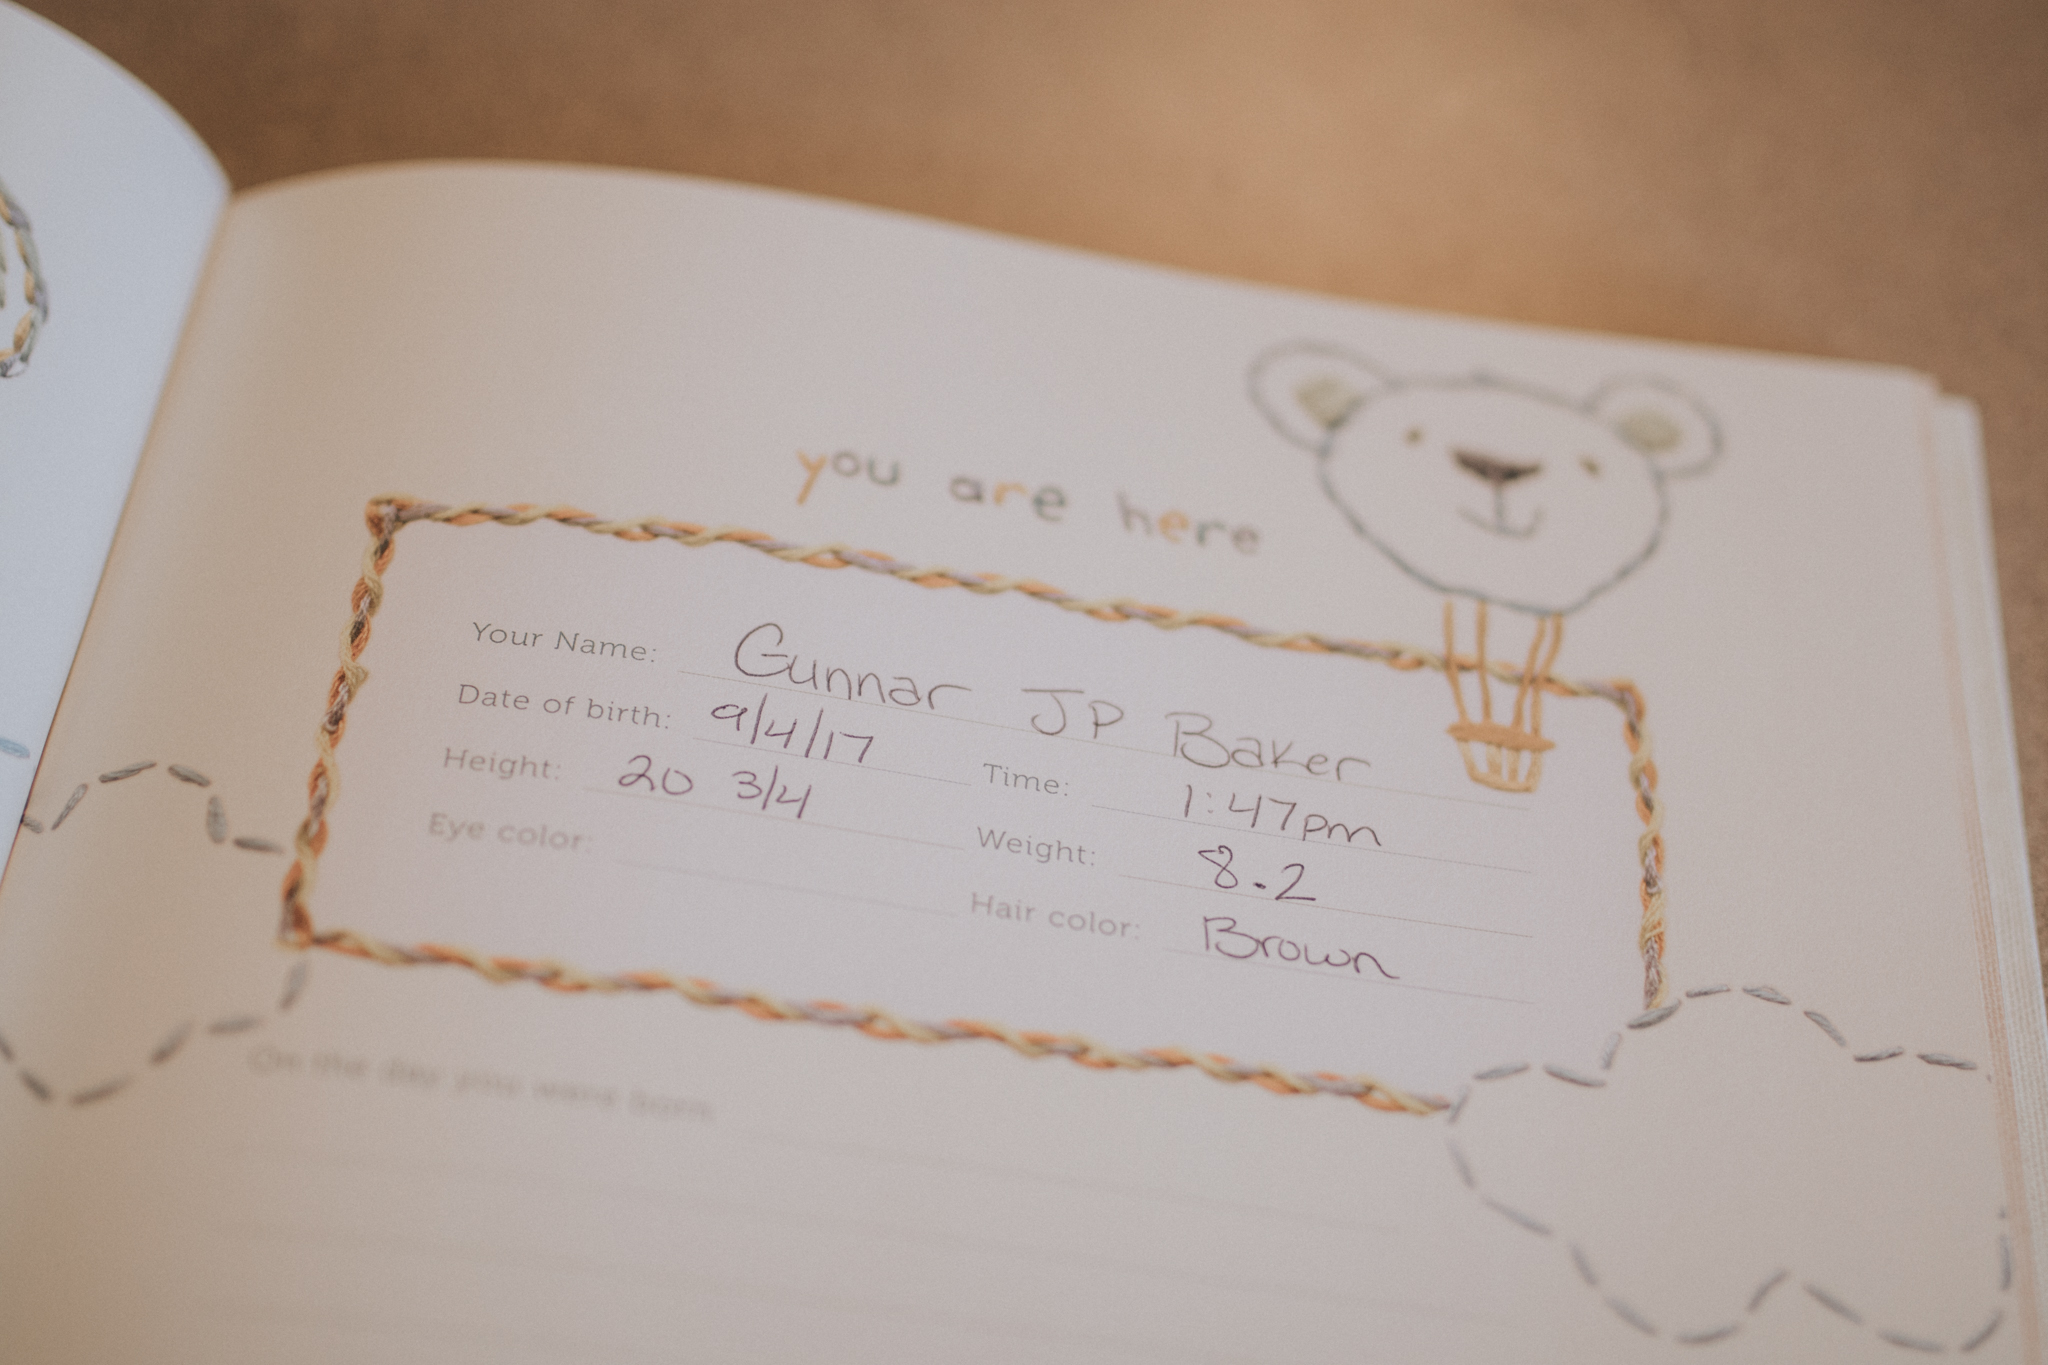 you are here
Your Name: Gunnar JP Baker
Date of birth: 9/4/17 Time: 1:47pm
Height: 20 3/4 Weight: 8.2
Eye color: Hair color: Brown
On the day you were born